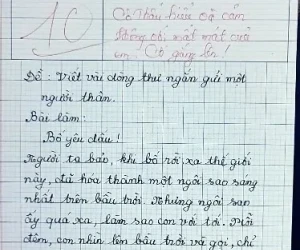 10
Cô thấu hiểu và cảm
thông với mất mát của
em. Cố gắng lên!
Đề: Viết vài dòng thư ngắn gửi một
người thân.
Bài làm:
Bố yêu dấu!
Người ta bảo, khi bố rời xa thế giới
này, đã hóa thành một ngôi sao sáng
nhất trên bầu trời. Nhưng ngôi sao
ấy quá xa, làm sao con với tới. Mỗi
đêm, con nhìn lên bầu trời và gọi, chỉ